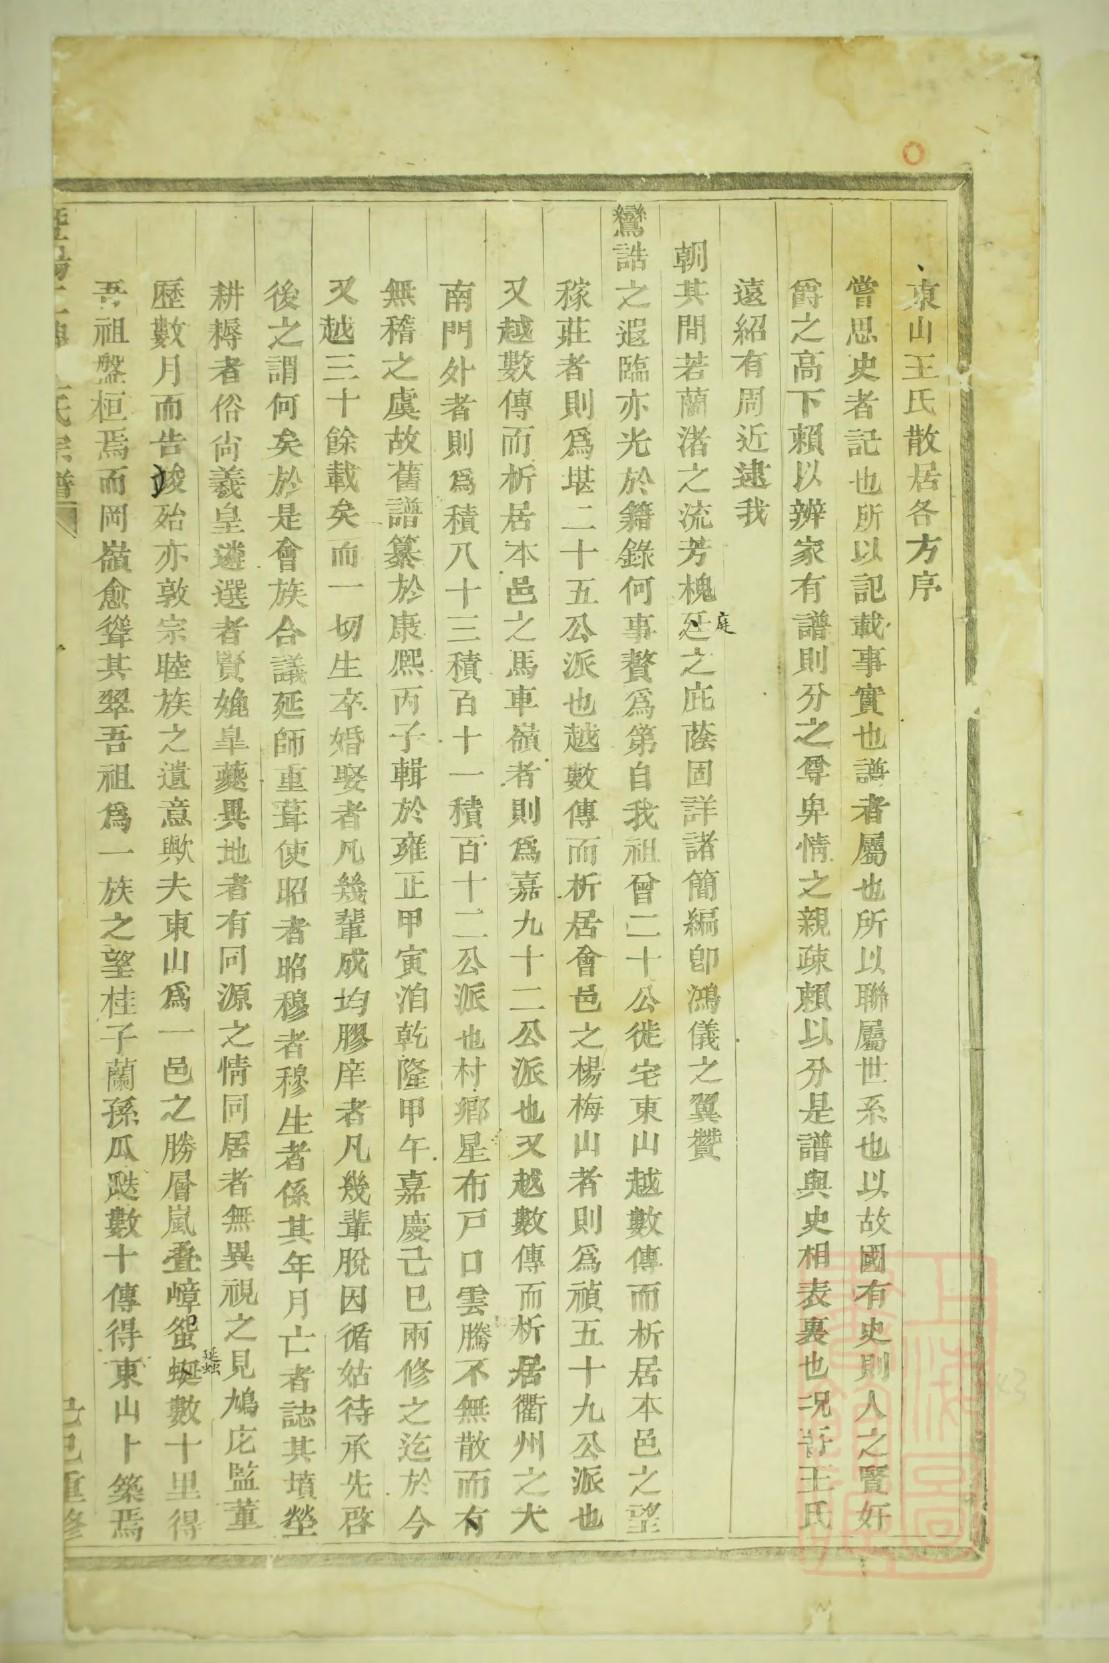 東山王氏散居各方序
嘗思史者記也所以記載事實也譜者屬也所以聯屬世系也以故國有史則人之賢奸
爵之高下賴以辨家有譜則分之尊卑情之親疎賴以分是譜與史相表裏也况吾王氏
遠紹有周近逮我
朝其間若蘭渚之流芳槐廷之庇蔭固詳諸簡編卽鴻儀之翼贊
庭
鸞誥之遐臨亦光於籍錄何事贅爲第自我祖曾二十公徙宅東山越數傳而析居本邑之望
稼莊者則爲堪二十五公派也越數傳而析居會邑之楊梅山者則爲禎五十九公派也
又越數傳而析居本邑之馬車嶺者則爲嘉九十二公派也又越數傳而析居衢州之大
南門外者則爲積八十三積百十一積百十二公派也村鄉星布戸口雲騰不無散而有
無稽之虞故舊譜纂於康熈丙子輯於雍正甲寅洎乾隆甲午嘉慶己巳兩修之迄於今
又越三十餘載矣而一切生卒婚娶者凡幾輩成均膠庠者凡幾輩脫因循姑待承先啓
後之謂何矣於是會族合議延師重葺使昭者昭穆者穆生者係其年月亡者誌其墳塋
耕耨者俗尚羲皇遴選者賢媲皐夔異地者有同源之情同居者無異視之見鳩庀監董
歷數月而告竣殆亦敦宗睦族之遺意歟夫東山爲一邑之勝層嵐叠嶂蜿蜒數十里得
蜒
吾祖盤桓焉而岡嶺愈聳其翠吾祖爲一族之望桂子蘭孫瓜瓞數十傳得東山卜築焉
氏宗譜
己巳重修
上海圖書館藏